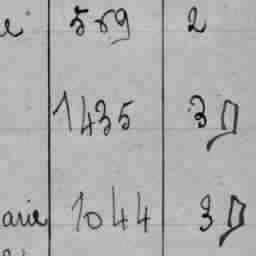 e 589 2
1435 3 D
arie 1044 3 D